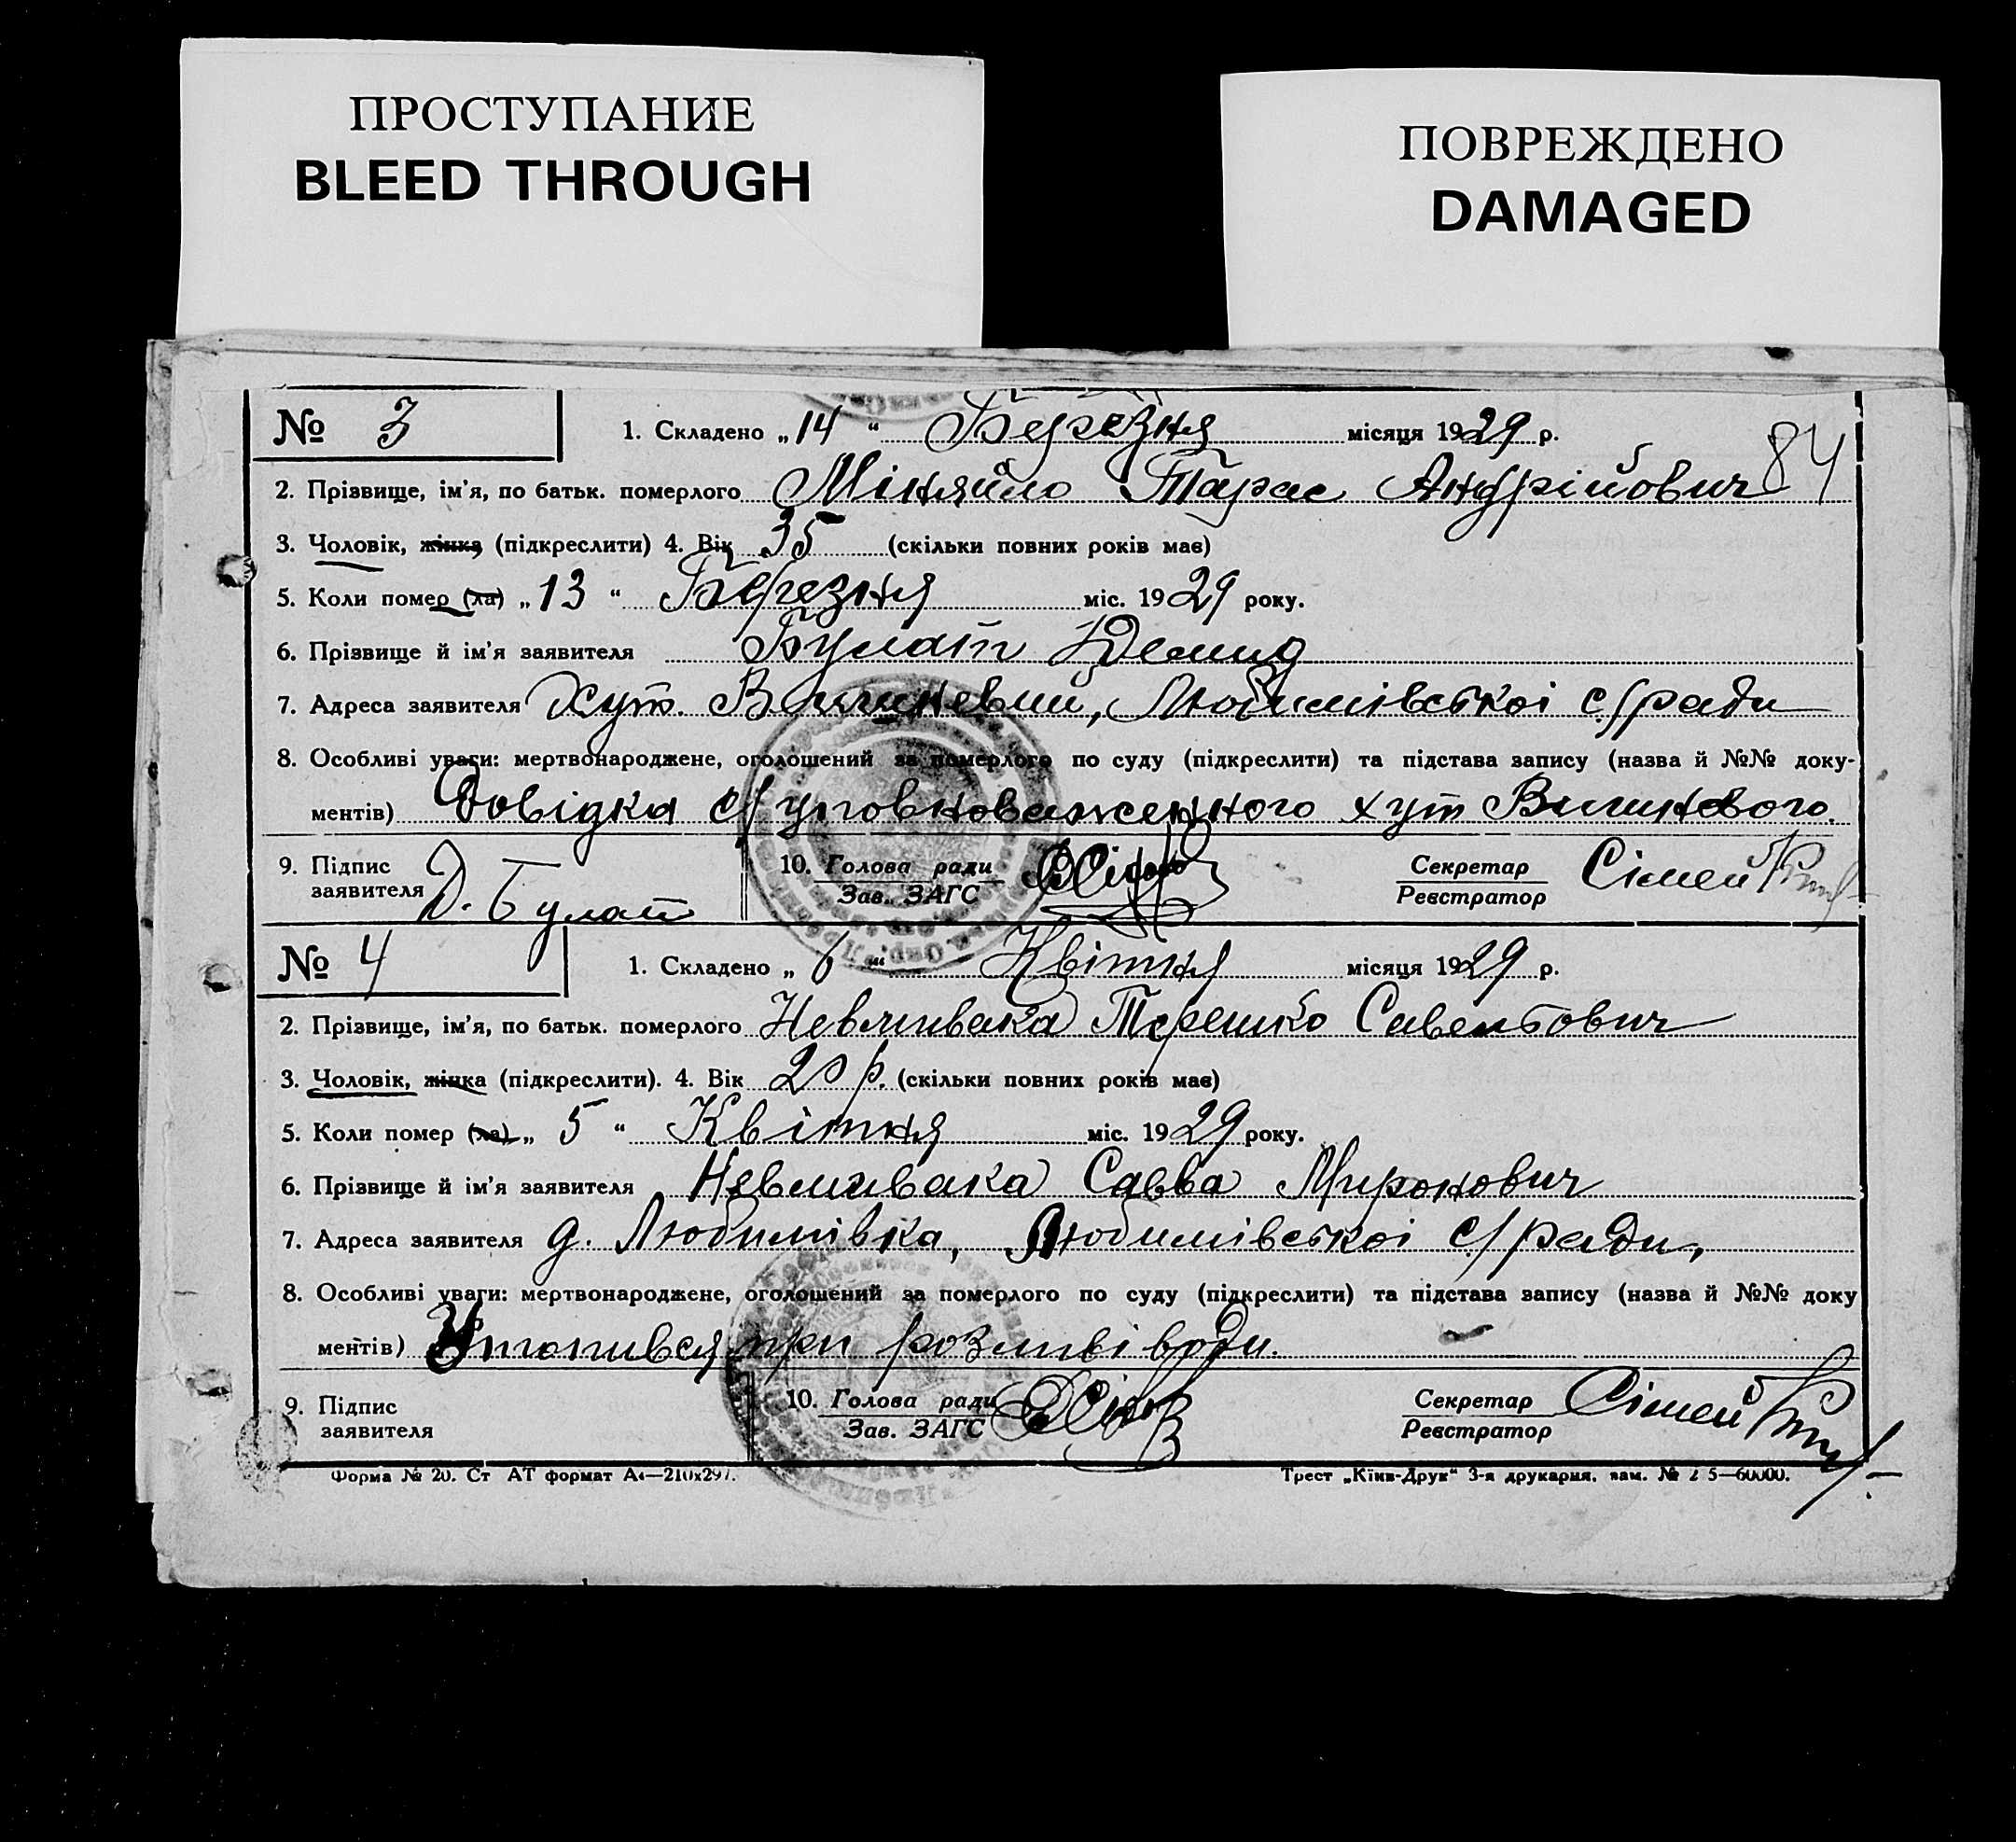 ПРОСТУПАНИЕ
BLEED THROUGH
ПОВРЕЖДЕНО
DAMAGED
№ 3
1. Складено „14“ Березня місяця 1929 р.
84
2. Прізвище, ім'я, по батьк. померлого Міняйло Тарас Андрійович
3. Чоловік, жінка (підкреслити) 4. Вік 35 (скільки повних років має)
5. Коли помер (ла) „13“ Березня міс. 1929 року.
6. Прізвище й ім'я заявителя Булат Демид
7. Адреса заявителя Хут. Вишневий, Любимівської с/ради
8. Особливі уваги: мертвонароджене, оголошений за померлого по суду (підкреслити) та підстава запису (назва й №№ доку-
ментів) Довідка с/уповноваженного хут Вишневого.
9. Підпис заявителя Д. Булат
10. Голова ради
Зав. ЗАГС
Секретар
Реєстратор
№ 4
1. Складено „6“ Квітня місяця 1929 р.
2. Прізвище, ім'я, по батьк. померлого Невливака Терешко Савентович
3. Чоловік, жінка (підкреслити). 4. Вік 20 р. (скільки повних років має)
5. Коли помер (ла) „5“ Квітня міс. 1929 року.
6. Прізвище й ім'я заявителя Невливака Савва Миронович
7. Адреса заявителя д. Любимівка, Любимівської с/ради,
8. Особливі уваги: мертвонароджене, оголошений за померлого по суду (підкреслити) та підстава запису (назва й №№ доку
ментів) Утопився при розливі води.
9. Підпис
заявителя
10. Голова ради
Зав. ЗАГС
Секретар
Реєстратор
Форма № 20. Ст АТ формат А4—210х297.
Трест „Київ-Друк“ 3-я друкарня, зам. №